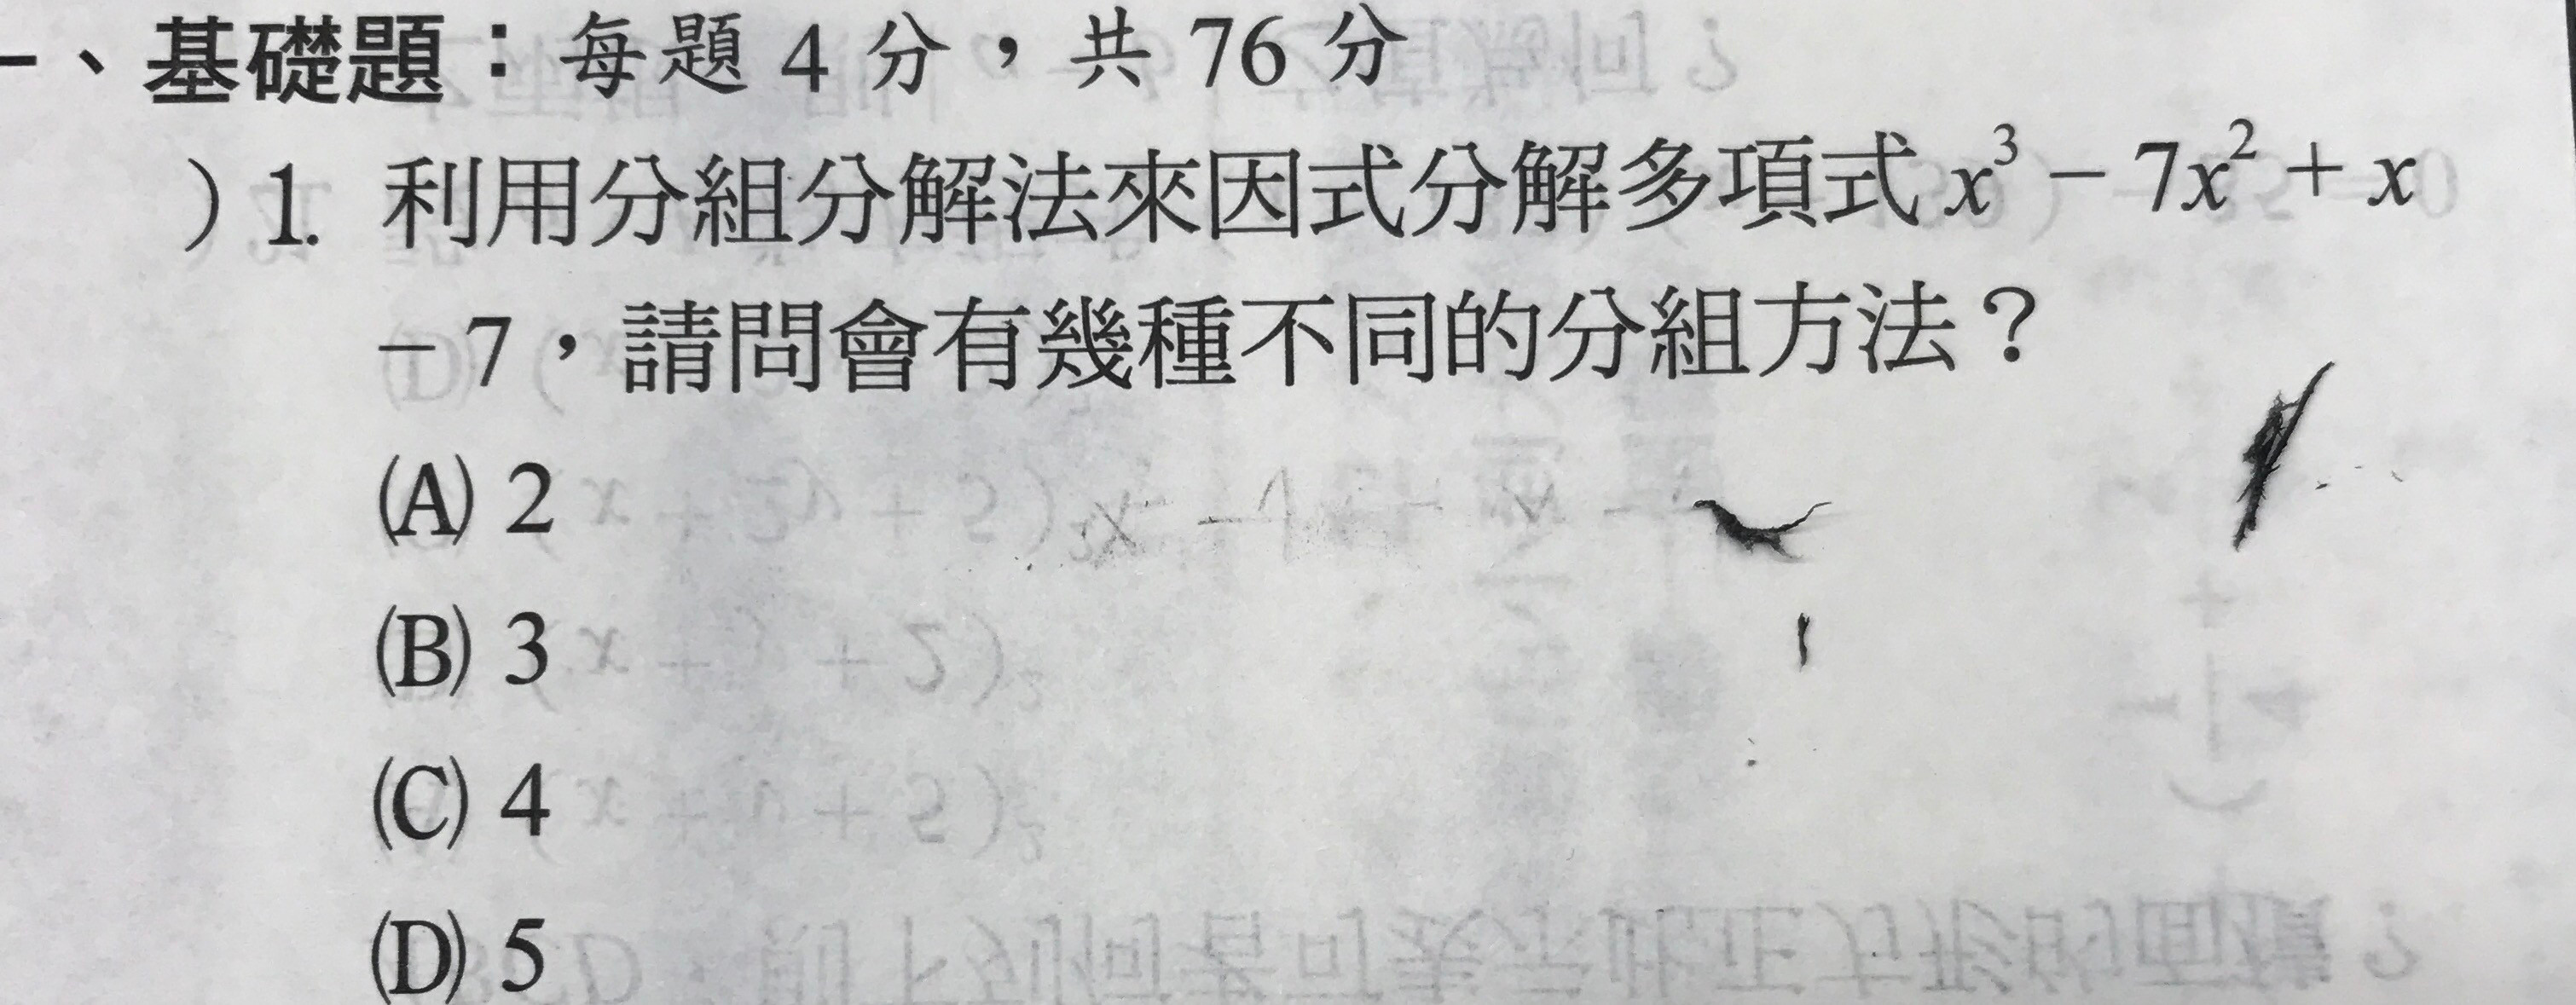 一、基礎題：每題 4 分，共 76 分
）1. 利用分組分解法來因式分解多項式 x³ − 7x² + x
− 7，請問會有幾種不同的分組方法？
(A) 2
(B) 3
(C) 4
(D) 5